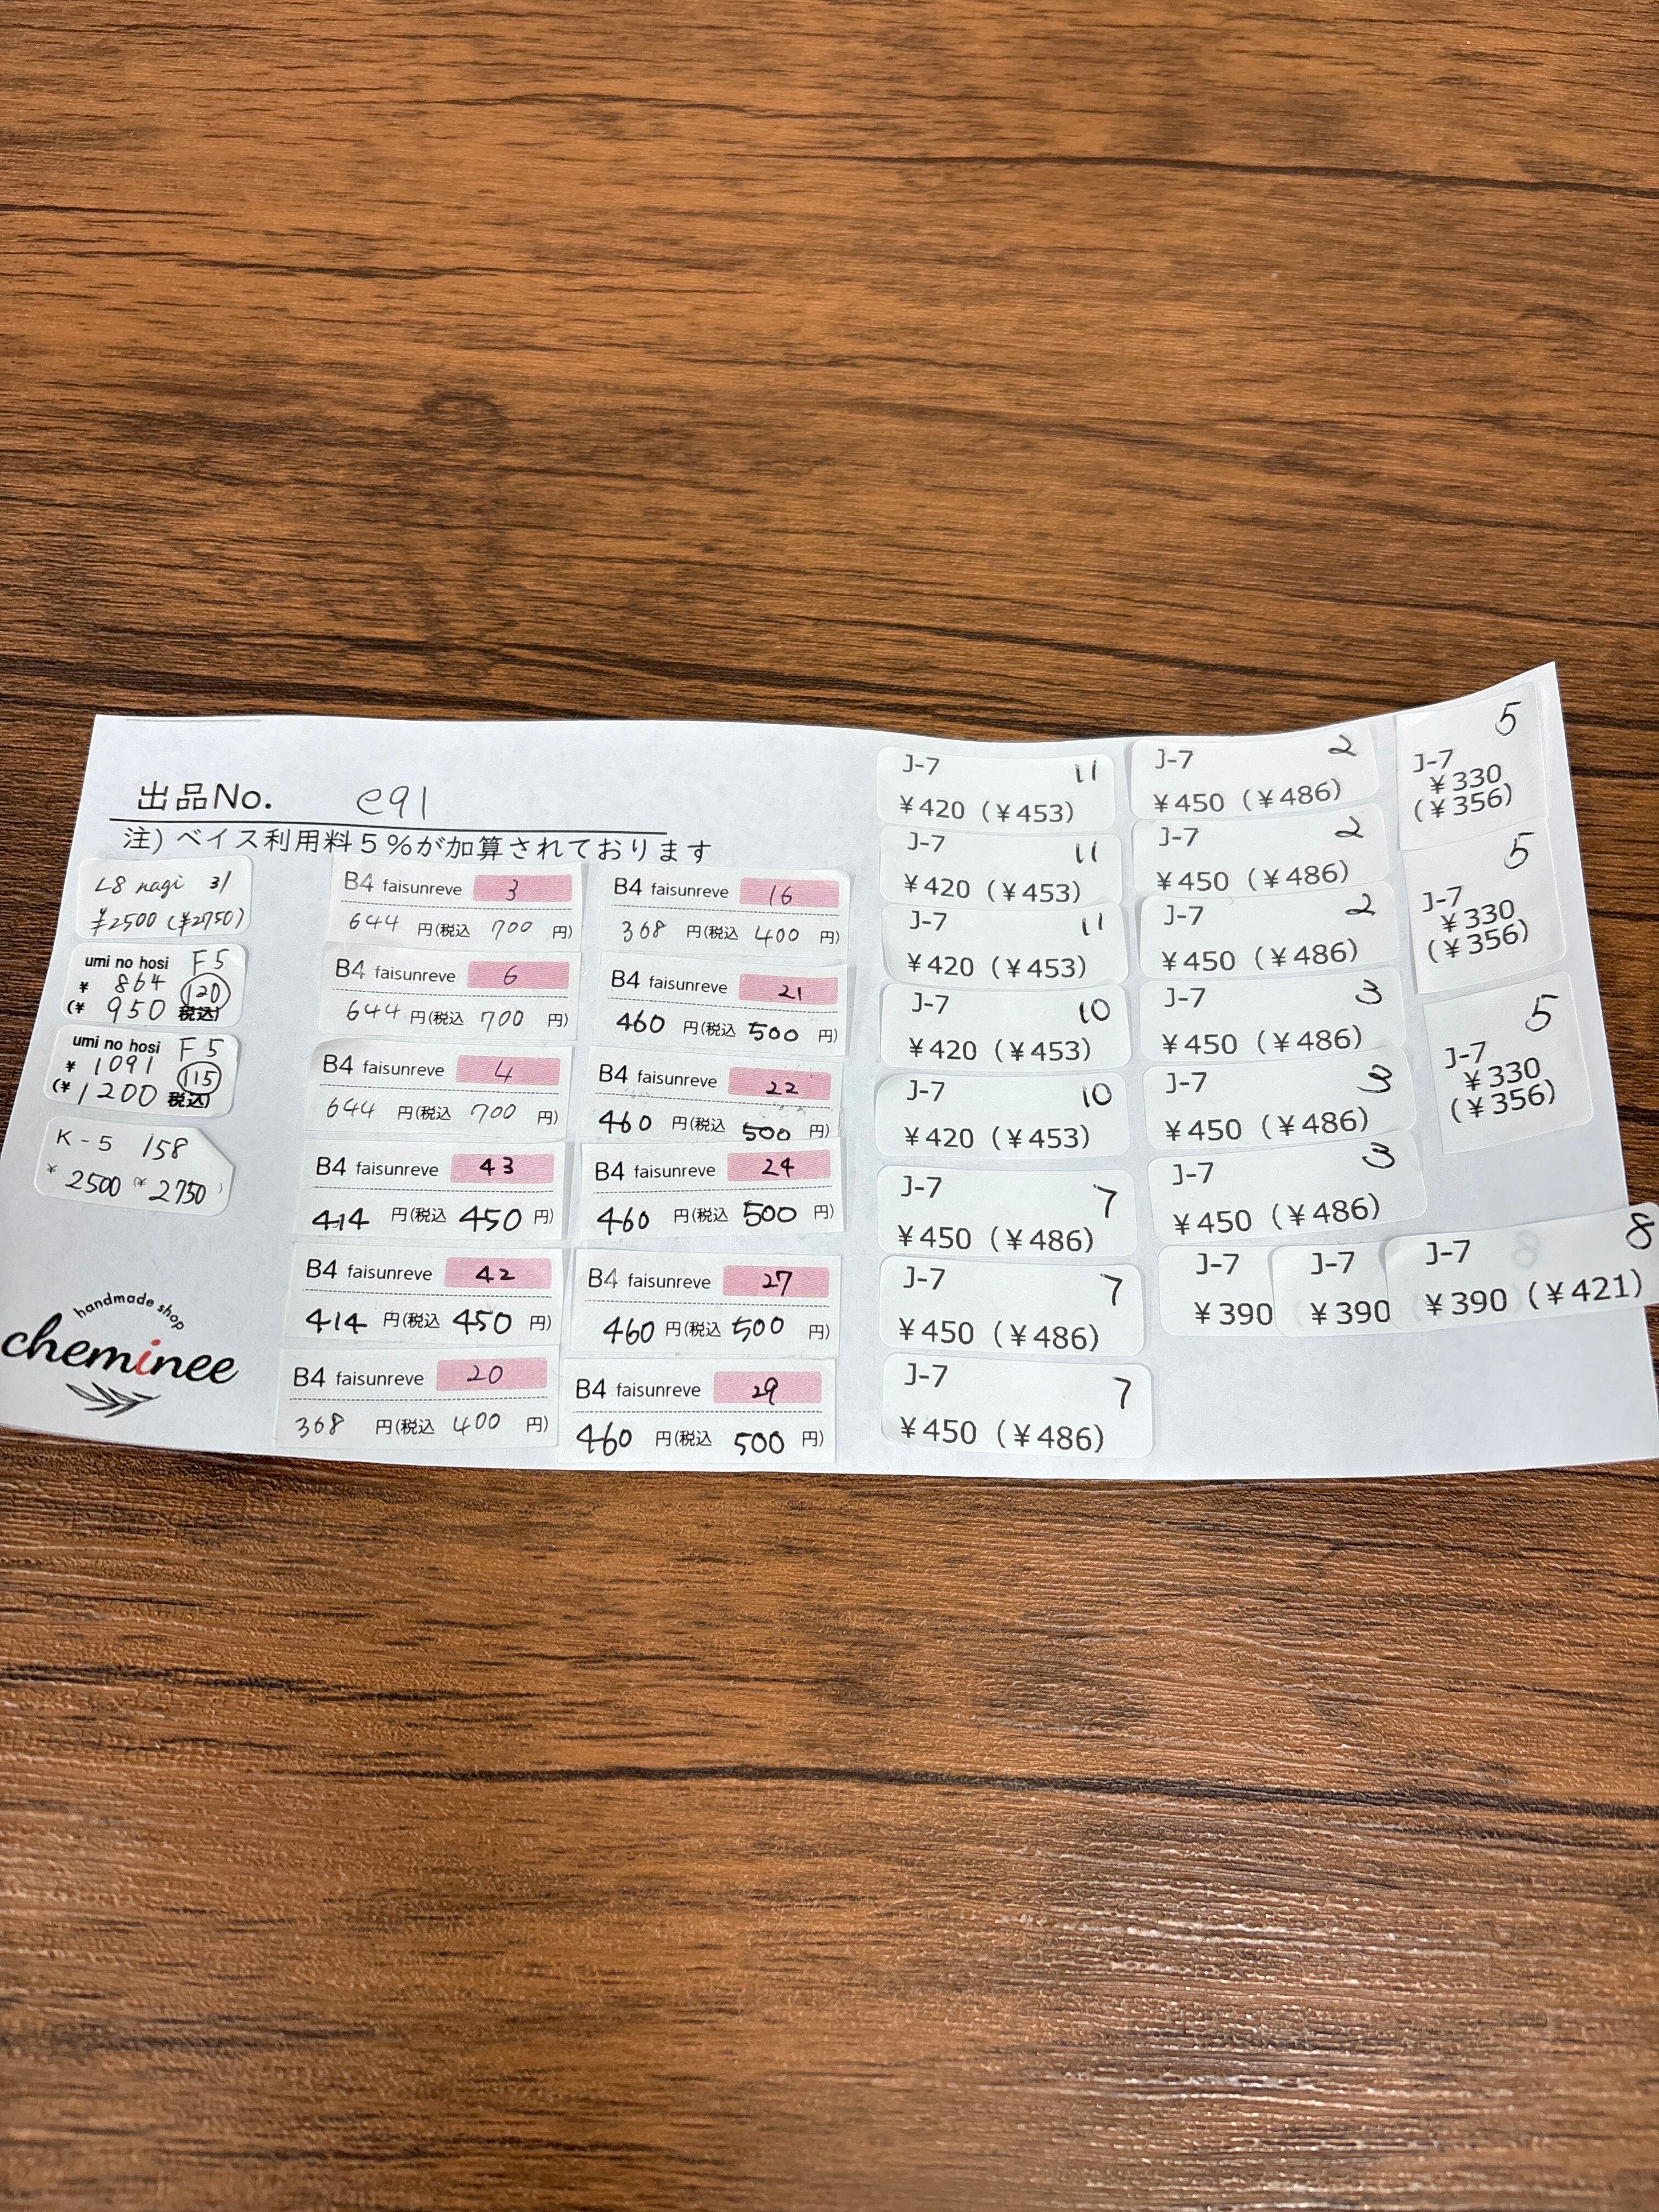 出品No. e91
注) ベイス利用料５％が加算されております
L8 nagi 31
¥2500 (¥2750)
umi no hosi F5
¥ 864 120
(¥ 950 税込)
umi no hosi F5
¥ 1091 115
(¥ 1200 税込)
K-5 158
¥ 2500 (¥ 2750 )
handmade shop
cheminee
B4 faisunreve 3
644 円(税込 700 円)
B4 faisunreve 6
644 円(税込 700 円)
B4 faisunreve 4
644 円(税込 700 円)
B4 faisunreve 43
414 円(税込 450 円)
B4 faisunreve 42
414 円(税込 450 円)
B4 faisunreve 20
368 円(税込 400 円)
B4 faisunreve 16
368 円(税込 400 円)
B4 faisunreve 21
460 円(税込 500 円)
B4 faisunreve 22
460 円(税込 500 円)
B4 faisunreve 24
460 円(税込 500 円)
B4 faisunreve 27
460 円(税込 500 円)
B4 faisunreve 29
460 円(税込 500 円)
J-7 11
¥420 (¥453)
J-7 11
¥420 (¥453)
J-7 11
¥420 (¥453)
J-7 10
¥420 (¥453)
J-7 10
¥420 (¥453)
J-7 7
¥450 (¥486)
J-7 7
¥450 (¥486)
J-7 7
¥450 (¥486)
J-7 2
¥450 (¥486)
J-7 2
¥450 (¥486)
J-7 2
¥450 (¥486)
J-7 3
¥450 (¥486)
J-7 3
¥450 (¥486)
J-7 3
¥450 (¥486)
J-7
¥390
J-7
¥390
J-7 8
¥390 (¥421)
5
J-7
¥330
(¥356)
5
J-7
¥330
(¥356)
5
J-7
¥330
(¥356)